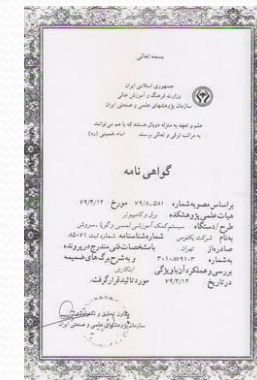 بسمه تعالی
جمهوری اسلامی ایران
وزارت فرهنگ و آموزش عالی
سازمان پژوهشهای علمی و صنعتی ایران
علم و تعهد به منزله دوبال هستند که با هم می‌توانند
به مراتب ترقی و تعالی برسند امام خمینی (ره)
گواهی نامه
براساس مصوبه شماره ۷۹/۸۰۵۸۱ مورخ ۷۹/۴/۱۴
هیات علمی پژوهشکده برق و کامپیوتر
طرح / دستگاه سیستم کمک آموزشی لمسی و گویا
بنام شرکت پکتوس شماره شناسنامه شماره ثبت ۸۵۰۷۱
صادره از تهران بامشخصات فنی مندرج در پرونده
به شماره ۳۰۱۰۸۷۹۱۰۳ و به شرح برگ های ضمیمه
بررسی و عملکرد آن با ویژگی ابتکاری
در تاریخ ۷۹/۴/۱۴ مورد تائید قرار گرفت.
سازمان پژوهشهای علمی و صنعتی ایران